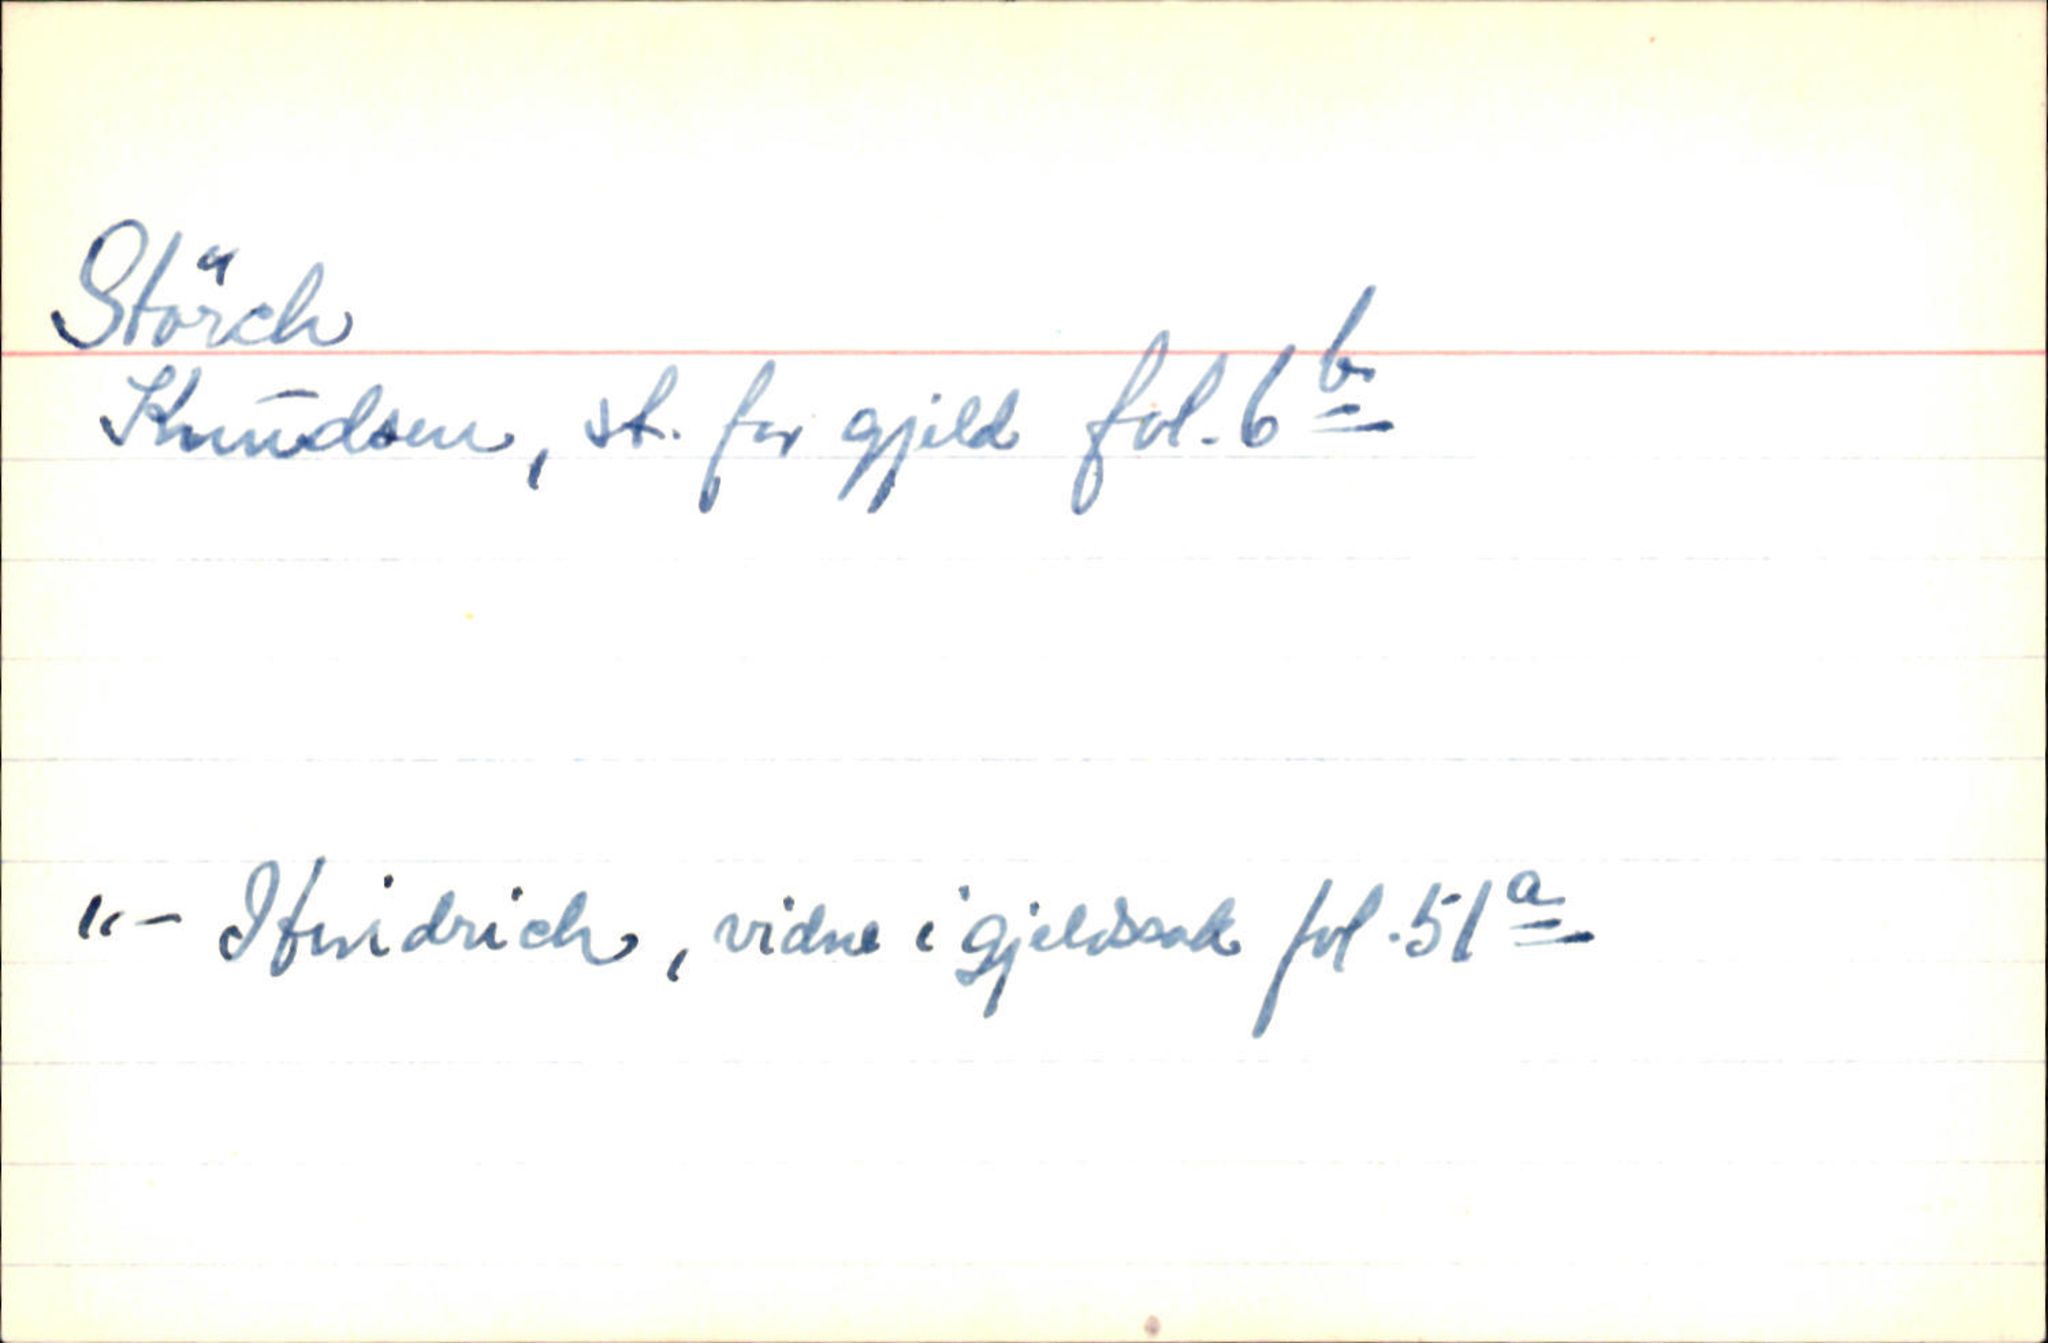 Störch
Knudsen, st. for gjeld fol. 6 b
"- Hindrich, vidne i gjeldssak fol. 51 a